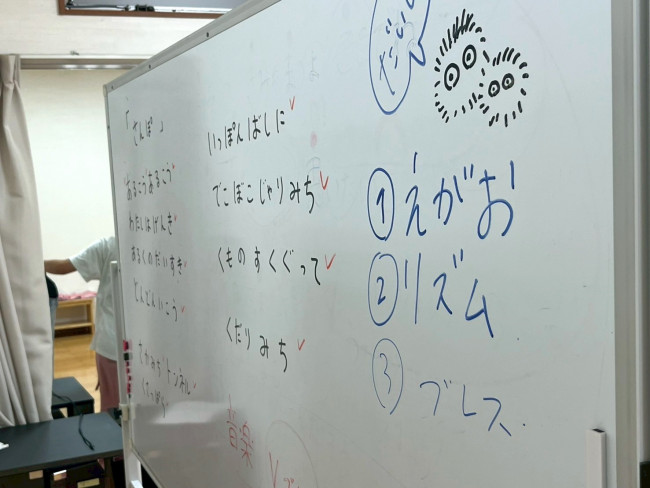 「さんぽ」
あるこうあるこう
わたしはげんき
あるくのだいすき
どんどんいこう
さかみち トンネル
くさっぱら
いっぽんばしに
でこぼこじゃりみち
くものすくぐって
くだりみち
音楽
①えがお
②リズム
③ブレス